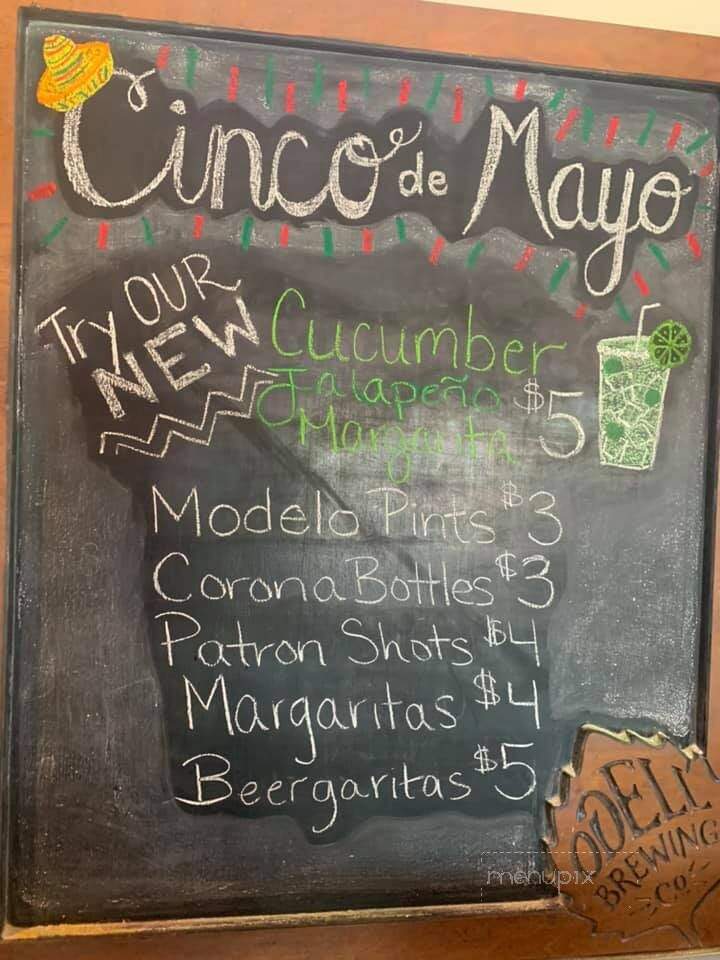 Cinco de Mayo
Try OUR
NEW
Cucumber
Jalapeño
Margarita $5
Modelo Pints $3
Corona Bottles $3
Patron Shots $4
Margaritas $4
Beergaritas $5
ODELL
BREWING
Co.
menupix